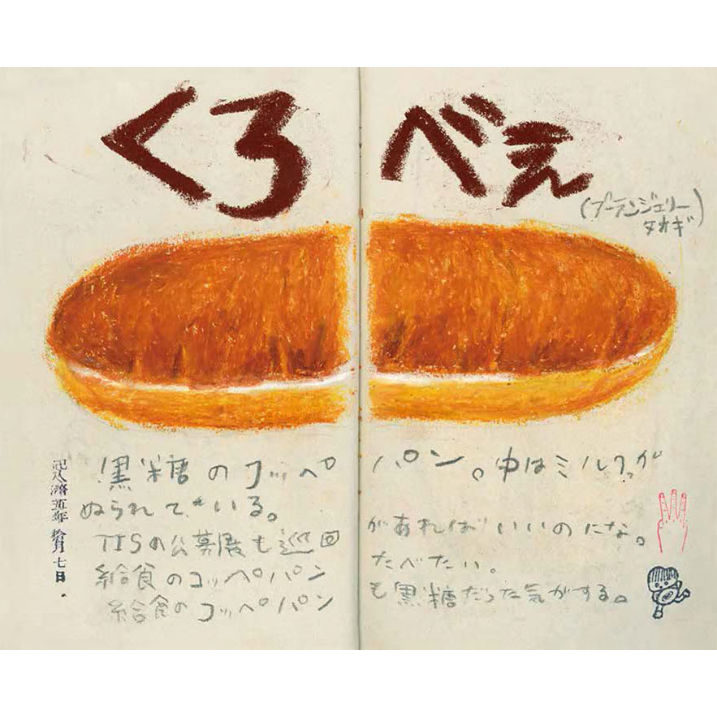 くろべぇ
(ブーランジェリー
タカギ)
黒糖のコッペパン。中はミルクが
ぬられている。
TISの公募展も巡回があればいいのにな。
給食のコッペパンたべたい。
給食のコッペパンも黒糖だった気がする。
記入濟 五年 拾月 七日